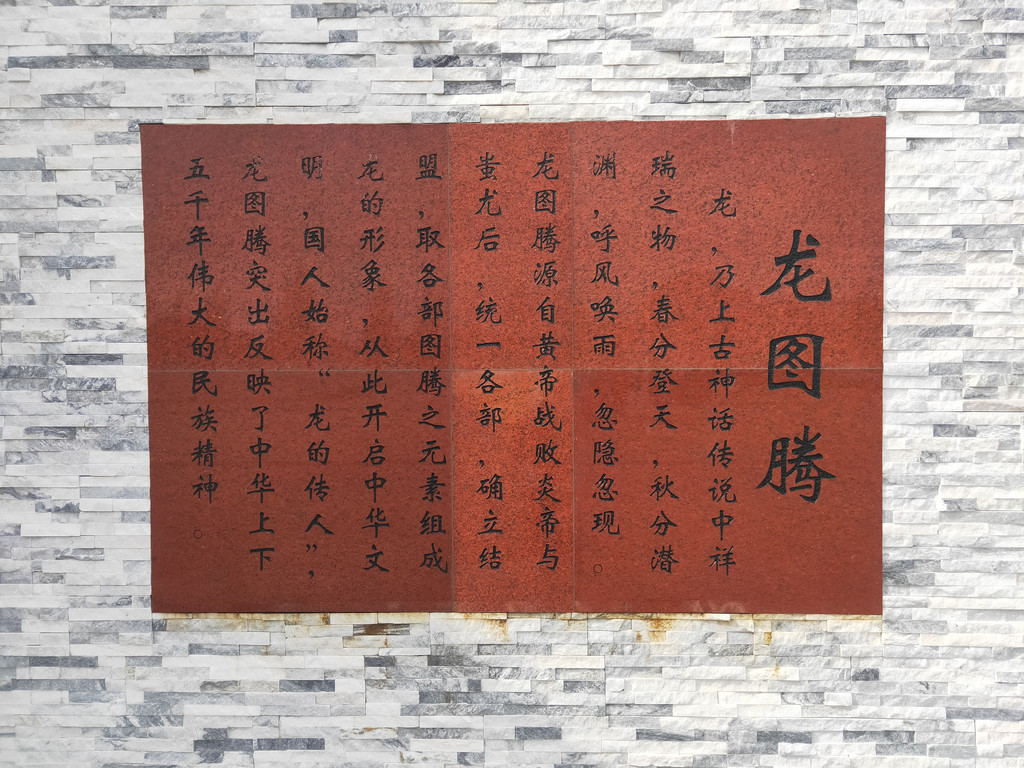 龙图腾
龙，乃上古神话传说中祥
瑞之物，春分登天，秋分潜
渊，呼风唤雨，忽隐忽现。
龙图腾源自黄帝战败炎帝与
蚩尤后，统一各部，确立结
盟，取各部图腾之元素组成
龙的形象，从此开启中华文
明，国人始称“龙的传人”，
龙图腾突出反映了中华上下
五千年伟大的民族精神。